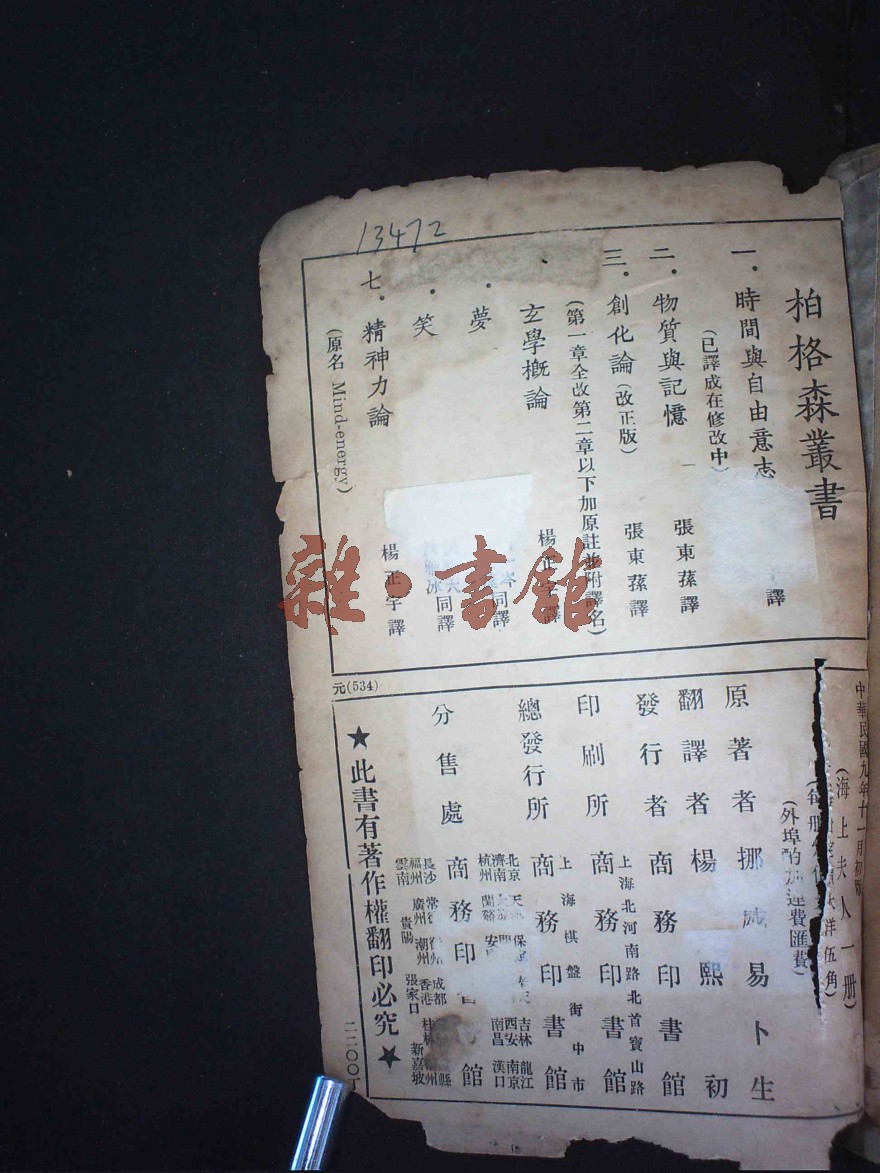 13472
柏格森叢書
一．時間與自由意志 譯
（已譯成在修改中）
二．物質與記憶 張東蓀譯
三．創化論（改正版） 張東蓀譯
（第一章全改第二章以下加原註並附譯名）
玄學槪論 楊正宇譯
夢 同譯
笑 同譯
七．精神力論 楊正宇譯
（原名 Mind-energy）
中華民國九年十一月初版
（海上夫人一册）
大洋伍角）
（外埠酌加運費匯費）
原著者 挪威易卜生
翻譯者 楊熙初
發行者 商務印書館
上海北河南路北首寶山路
印刷所 商務印書館
上海棋盤街中市
總發行所 商務印書館
北京 保 吉林 龍江
濟南 西安 南京
杭州 蘭谿 安 南昌 漢口
分售處 商務印 館
長沙 常 成都
福州 廣州 潮州 香港 桂林
雲南 貴陽 張家口 新嘉坡
★此書有著作權翻印必究★
元(534)
二二〇〇丁
雜·書館